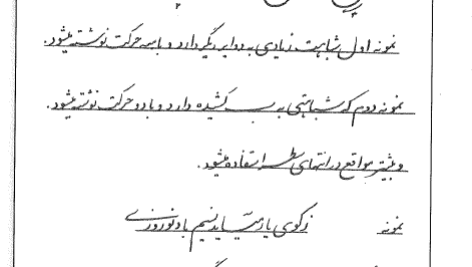 نمونه اول شباهت زیادی به دوایر دیگر دارد و با سه حرکت نوشته میشود.
نمونه دوم که شباهتی به ب کشیده دارد و با دو حرکت نوشته میشود.
و بیشتر مواقع در انتهای سطر استفاده میشود.
نمونه ز کوی یار می‌آید نسیم باد نوروزی